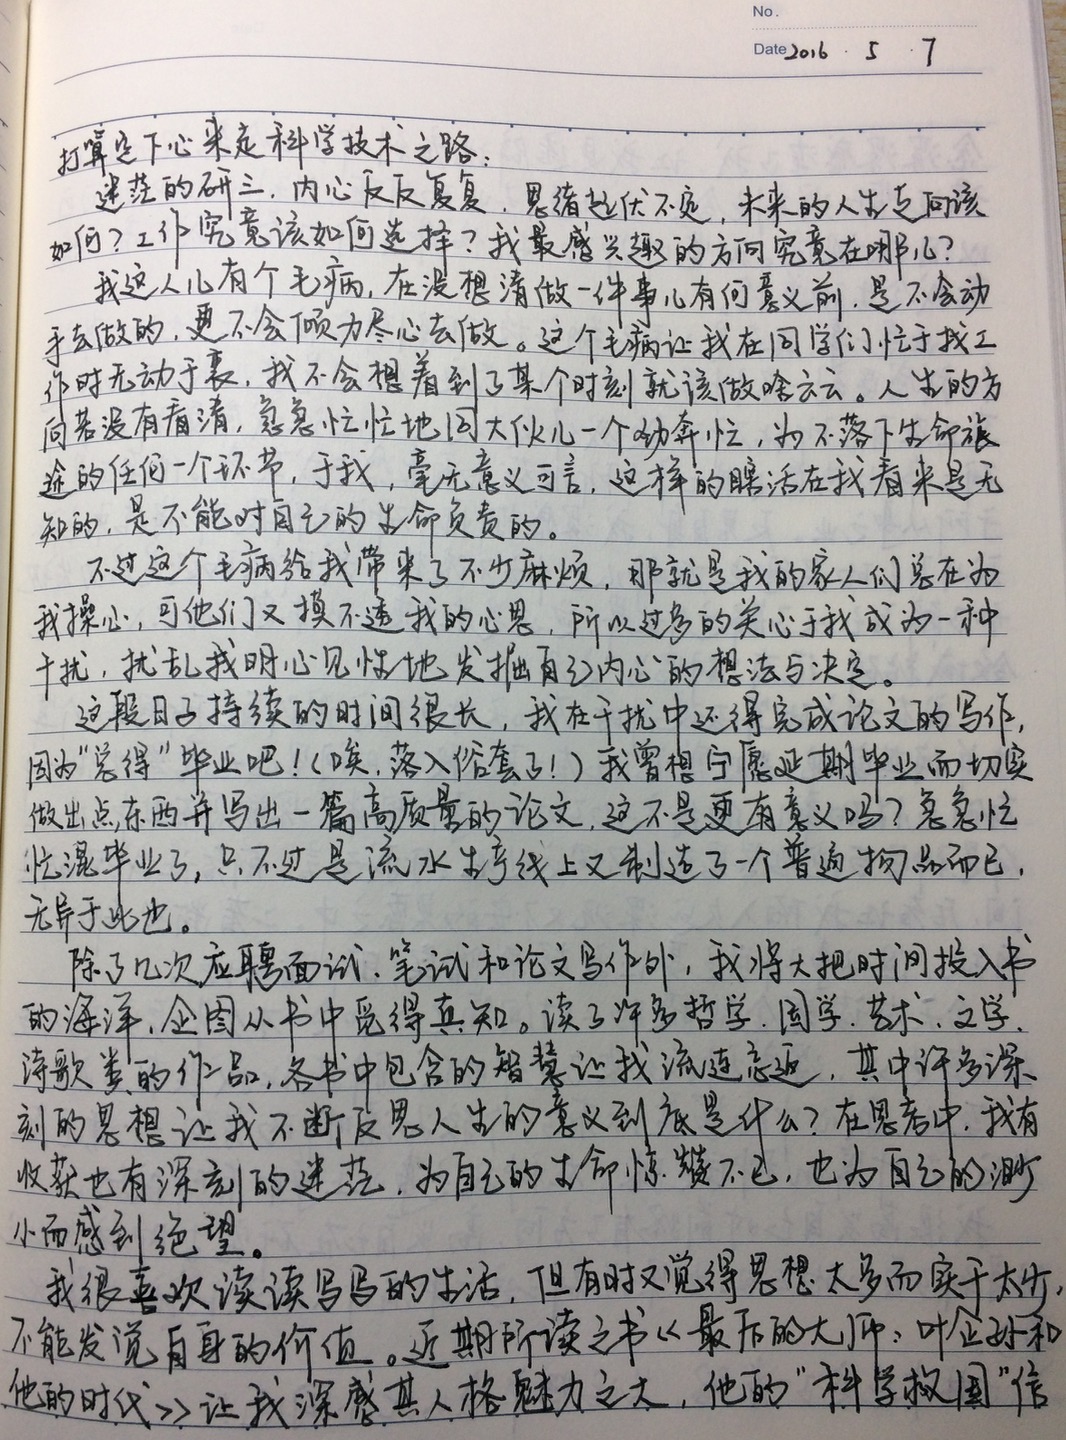 No.
Date 2016 . 5 . 7
打算定下心来走科学技术之路:
迷茫的研三，内心反反复复，思绪起伏不定，未来的人生走向该
如何？工作究竟该如何选择？我最感兴趣的方向究竟在哪儿？
我这人儿有个毛病，在没想清做一件事儿有何意义前，是不会动
手去做的，更不会倾力尽心去做。这个毛病让我在同学们忙于找工
作时无动于衷，我不会想着到了某个时刻就该做啥云云。人生的方
向若没有看清，急急忙忙地同大伙儿一个劲奔忙，为不落下生命旅
途的任何一个环节，于我，毫无意义可言，这样的瞎活在我看来是无
知的，是不能对自己的生命负责的。
不过这个毛病给我带来了不少麻烦，那就是我的家人们总在为
我操心，可他们又摸不透我的心思，所以过多的关心于我成为一种
干扰，扰乱我明心见性地发掘自己内心的想法与决定。
这段日子持续的时间很长，我在干扰中还得完成论文的写作，
因为“总得”毕业吧！（唉，落入俗套了！）我曾想宁愿延期毕业而切实
做出点东西并写出一篇高质量的论文，这不是更有意义吗？急急忙
忙混毕业了，只不过是流水生产线上又制造了一个普通物品而已，
无异于此也。
除了几次应聘面试、笔试和论文写作外，我将大把时间投入书
的海洋，企图从书中觅得真知。读了许多哲学、国学、艺术、文学、
诗歌类的作品，各书中包含的智慧让我流连忘返，其中许多深
刻的思想让我不断反思人生的意义到底是什么？在思考中，我有
收获也有深刻的迷茫，为自己的生命惊叹不已，也为自己的渺
小而感到绝望。
我很喜欢读读写写的生活，但有时又觉得思想太多而实干太少，
不能发觉自身的价值。近期所读之书《最后的大师：叶企孙和
他的时代》让我深感其人格魅力之大，他的“科学救国”信